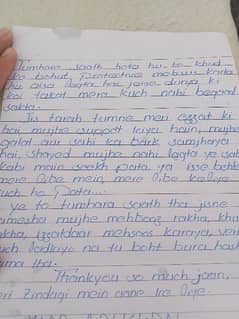 Tumhare saath hota hu to khud
ko bohut protective mehsus karta
hu aisa lagta hai jaise dunya ki
koi takat mera kuch nahi begad
sakta.
Jis tarah tumne meri ezzat ki
hai, mujhe support kiya hain, mujhe
galat aur sahi ka fark samjhaya
hai. Shayed mujhe nahi lagta ye sab
kabi mein seekh pata ya isse behtar
mere liye mein mere liye
kuch ho pata...
ye to tumhara saath tha jisne
hamesha mujhe mehfooz rakha, khush
rakha, izzatdaar mehsoos karaya,
na tu boht bura haal
mera tha.
Thankyou so much jaan,
meri Zindagi mein aane ke liye.